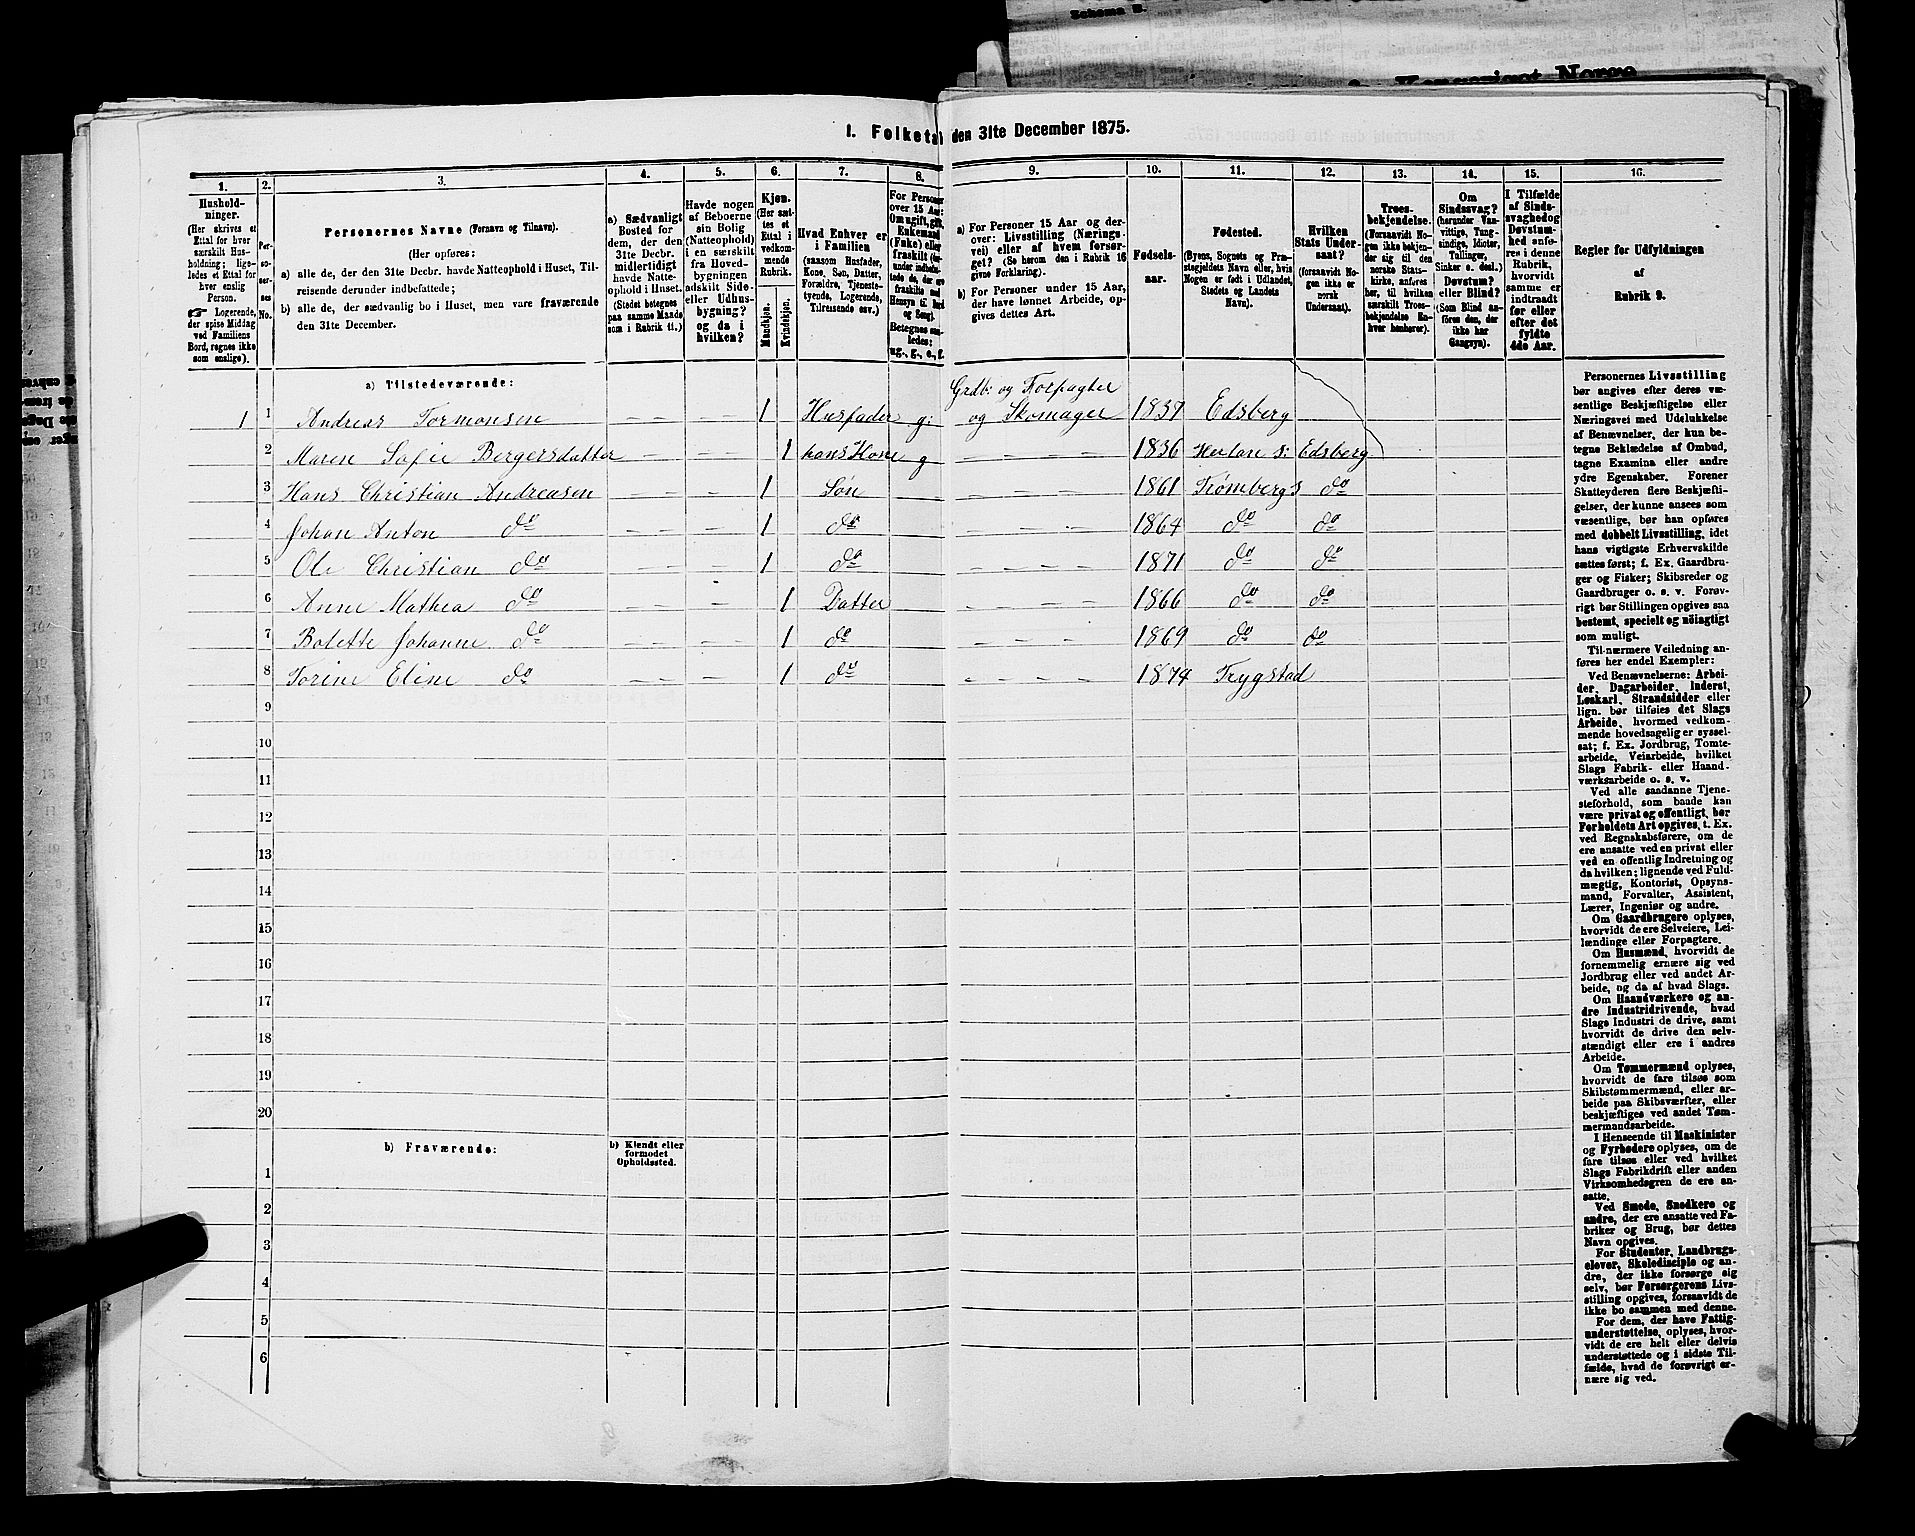 Schema B.
Kongeriget Norge
1. Folketal den 31te December 1875.
1. 2. 3. 4. 5. 6. 7. 8. 9. 10. 11. 12. 13. 14. 15. 16.
Husholdninger.
(Her skrives et
Ettal for hver
særskilt Husholdning;
ligeledes et Ettal for
hver enslig
Person.
Logerende,
der spise Middag
ved Familiens
Bord, regnes ikke
som enslige).
Personernes No.
Personernes Navne (Fornavn og Tilnavn).
(Her opføres:
a) alle de, der den 31te Decbr. havde Natteophold i Huset, Tilreisende
derunder indbefattede;
b) alle de, der sædvanlig bo i Huset, men vare fraværende
den 31te December.
a) Sædvanligt
Bosted for
dem, der den
31te Decbr.
midlertidigt
havde Natteophold
i Huset.
(Stedet betegnes
paa samme Maade
som i Rubrik 11.)
Havde nogen
af Beboerne
sin Bolig
(Natteophold)
i en særskilt
fra Hovedbygningen
adskilt Sideeller
Udhusbygning?
og da i
hvilken?
Kjøn.
(Her sættes
et
Ettal i
vedkommende
Rubrik.
Mandkjøn.
Kvindekjøn.
Hvad Enhver er
i Familien
(saasom Husfader,
Kone, Søn, Datter,
Forældre, Tjenestetyende,
Logerende,
Tilreisende osv.)
For Personer
over 15 Aar:
Om ugift, gift,
Enkemand
(Enke) eller
fraskilt
Betegnes saaledes:
ug., g., e., f.
a) For Personer 15 Aar og derover:
Livsstilling (Næringsvei)
eller af hvem forsørget?
(Se herom den i Rubrik 16
givne Forklaring).
b) For Personer under 15 Aar,
der have lønnet Arbeide, opgives
dettes Art.
Fødselsaar.
Fødested.
(Byens, Sognets og Præstegjeldets
Navn eller, hvis
Nogen er født i Udlandet,
Stedets og Landets
Navn).
Hvilken
Stats Undersaat?
(forsaavidt Nogen
ikke er
norsk
Undersaat).
Troesbekjendelse.
(Forsaavidt Nogen
ikke bekjender
sig til den
norske Statskirke,
anføres
her, til hvilken
særskilt Troesbekjendelse
Enhver henhører).
Om
Sindssvag?
(herunder Vanvittige,
Tungsindige,
Idioter,
Tullinger,
Sinker o. desl.)
Døvstum?
eller Blind?
(Som Blind anføres
den, der
ikke har
Gangsyn).
I Tilfælde
af Sindssvaghed og
Døvstumhed
anføres
i denne
Rubrik,
hvorvidt
samme er
indtraadt
før eller
efter det
fyldte
4de Aar.
Regler for Udfyldningen
af
Rubrik 9.
a) Tilstedeværende:
1 1 Andreas Tormonsen — — — — 1 Husfader g: Grdb: og Forpagter og Skomager 1837 Edsberg
2 Maren Sofie Bergersdatter — — — — 1 hans Kone g — — — — 1836 Herlan S: Edsberg
3 Hans Christian Andreasen — — — — 1 Søn — — — 1861 Trømbergs do
4 Johan Anton do — — — — 1 do — — — 1864 do do
5 Ole Christian do — — — — 1 do — — — 1871 do do
6 Anne Mathea do — — — — 1 Datter — — — 1866 do do
7 Bolette Johanne do — — — — 1 do — — — 1869 do do
8 Torine Eline do — — — — 1 do — — — 1874 Trygstad
9
10
11
12
13
14
15
16
17
18
19
20
b) Fraværende:
b) Kjendt eller
formodet
Opholdssted.
1
2
3
4
5
6
Personernes Livsstilling
bør angives efter deres væsentlige
Beskjæftigelse eller
Næringsvei med Udelukkelse
af Benævnelser, der kun betegne
Beklædelse af Ombud,
tagne Examina eller andre
ydre Egenskaber. Forener
Skatteyderen flere Beskjæftigelser,
der kunne ansees som
væsentlige, bør han opføres
med dobbelt Livsstilling, idet
hans vigtigste Erhvervskilde
sættes først; f. Ex. Gaardbruger
og Fisker; Skibsreder og
Gaardbruger o. s. v. Forøvrigt
bør Stillingen opgives saa
bestemt, specielt og nöiagtigt
som muligt.
Til nærmere Veiledning anføres
her endel Exempler:
Ved Benævnelserne: Arbeider,
Dagarbeider, Inderst,
Løskarl, Strandsidder eller
lign. bør tilføies det Slags
Arbeide, hvormed vedkommende
hovedsagelig er sysselsat;
f. Ex. Jordbrug, Tomtearbeide,
Veiarbeide, hvilket
Slags Fabrik- eller Haandværksarbeide
o. s. v.
Ved alle saadanne Tjenesteforhold,
som baade kan
være privat og offentligt, bør
Forholdets Art opgives, t. Ex.
ved Regnskabsførere, om de
ere ansatte ved en privat eller
ved en offentlig Indretning og
da hvilken; lignende ved Fuldmægtig,
Kontorist, Opsynsmand,
Forvalter, Assistent,
Lærer, Ingeniør og andre.
Om Gaardbrugere oplyses,
hvorvidt de ere Selveiere, Leilændinge
eller Forpagtere.
Om Husmænd, hvorvidt de
fornemmelig ernære sig ved
Jordbrug eller ved andet Arbeide,
og da af hvad Slags.
Om Haandværkere og andre
Industridrivende, hvad
Slags Industri de drive, samt
hvorvidt de drive den selvstændigt
eller ere i andres
Arbeide.
Om Tømmermænd oplyses,
hvorvidt de fare tilsøs som
Skibstømmermænd, eller arbeide
paa Skibsværfter, eller
beskjæftiges ved andet Tømmermandsarbeide.
I Henseende til Maskinister
og Fyrbødere oplyses, om de
fare tilsøs eller ved hvilket
Slags Fabrikdrift eller anden
Virksomhedsgren de ere ansatte.
Ved Smede, Snedkere og
andre, der ere ansatte ved Fabriker
og Brug, bør dettes
Navn opgives.
For Studenter, Landbrugselever,
Skoledisciple og andre,
der ikke forsørge sig
selv, bør Forsørgerens Livsstilling
opgives, forsaavidt de
ikke bo sammen med denne.
For dem, der have Fattigunderstøttelse,
oplyses, hvorvidt
de ere helt eller delvis
understøttede og i sidste Tilfælde,
hvad de forøvrigt ernære
sig ved.